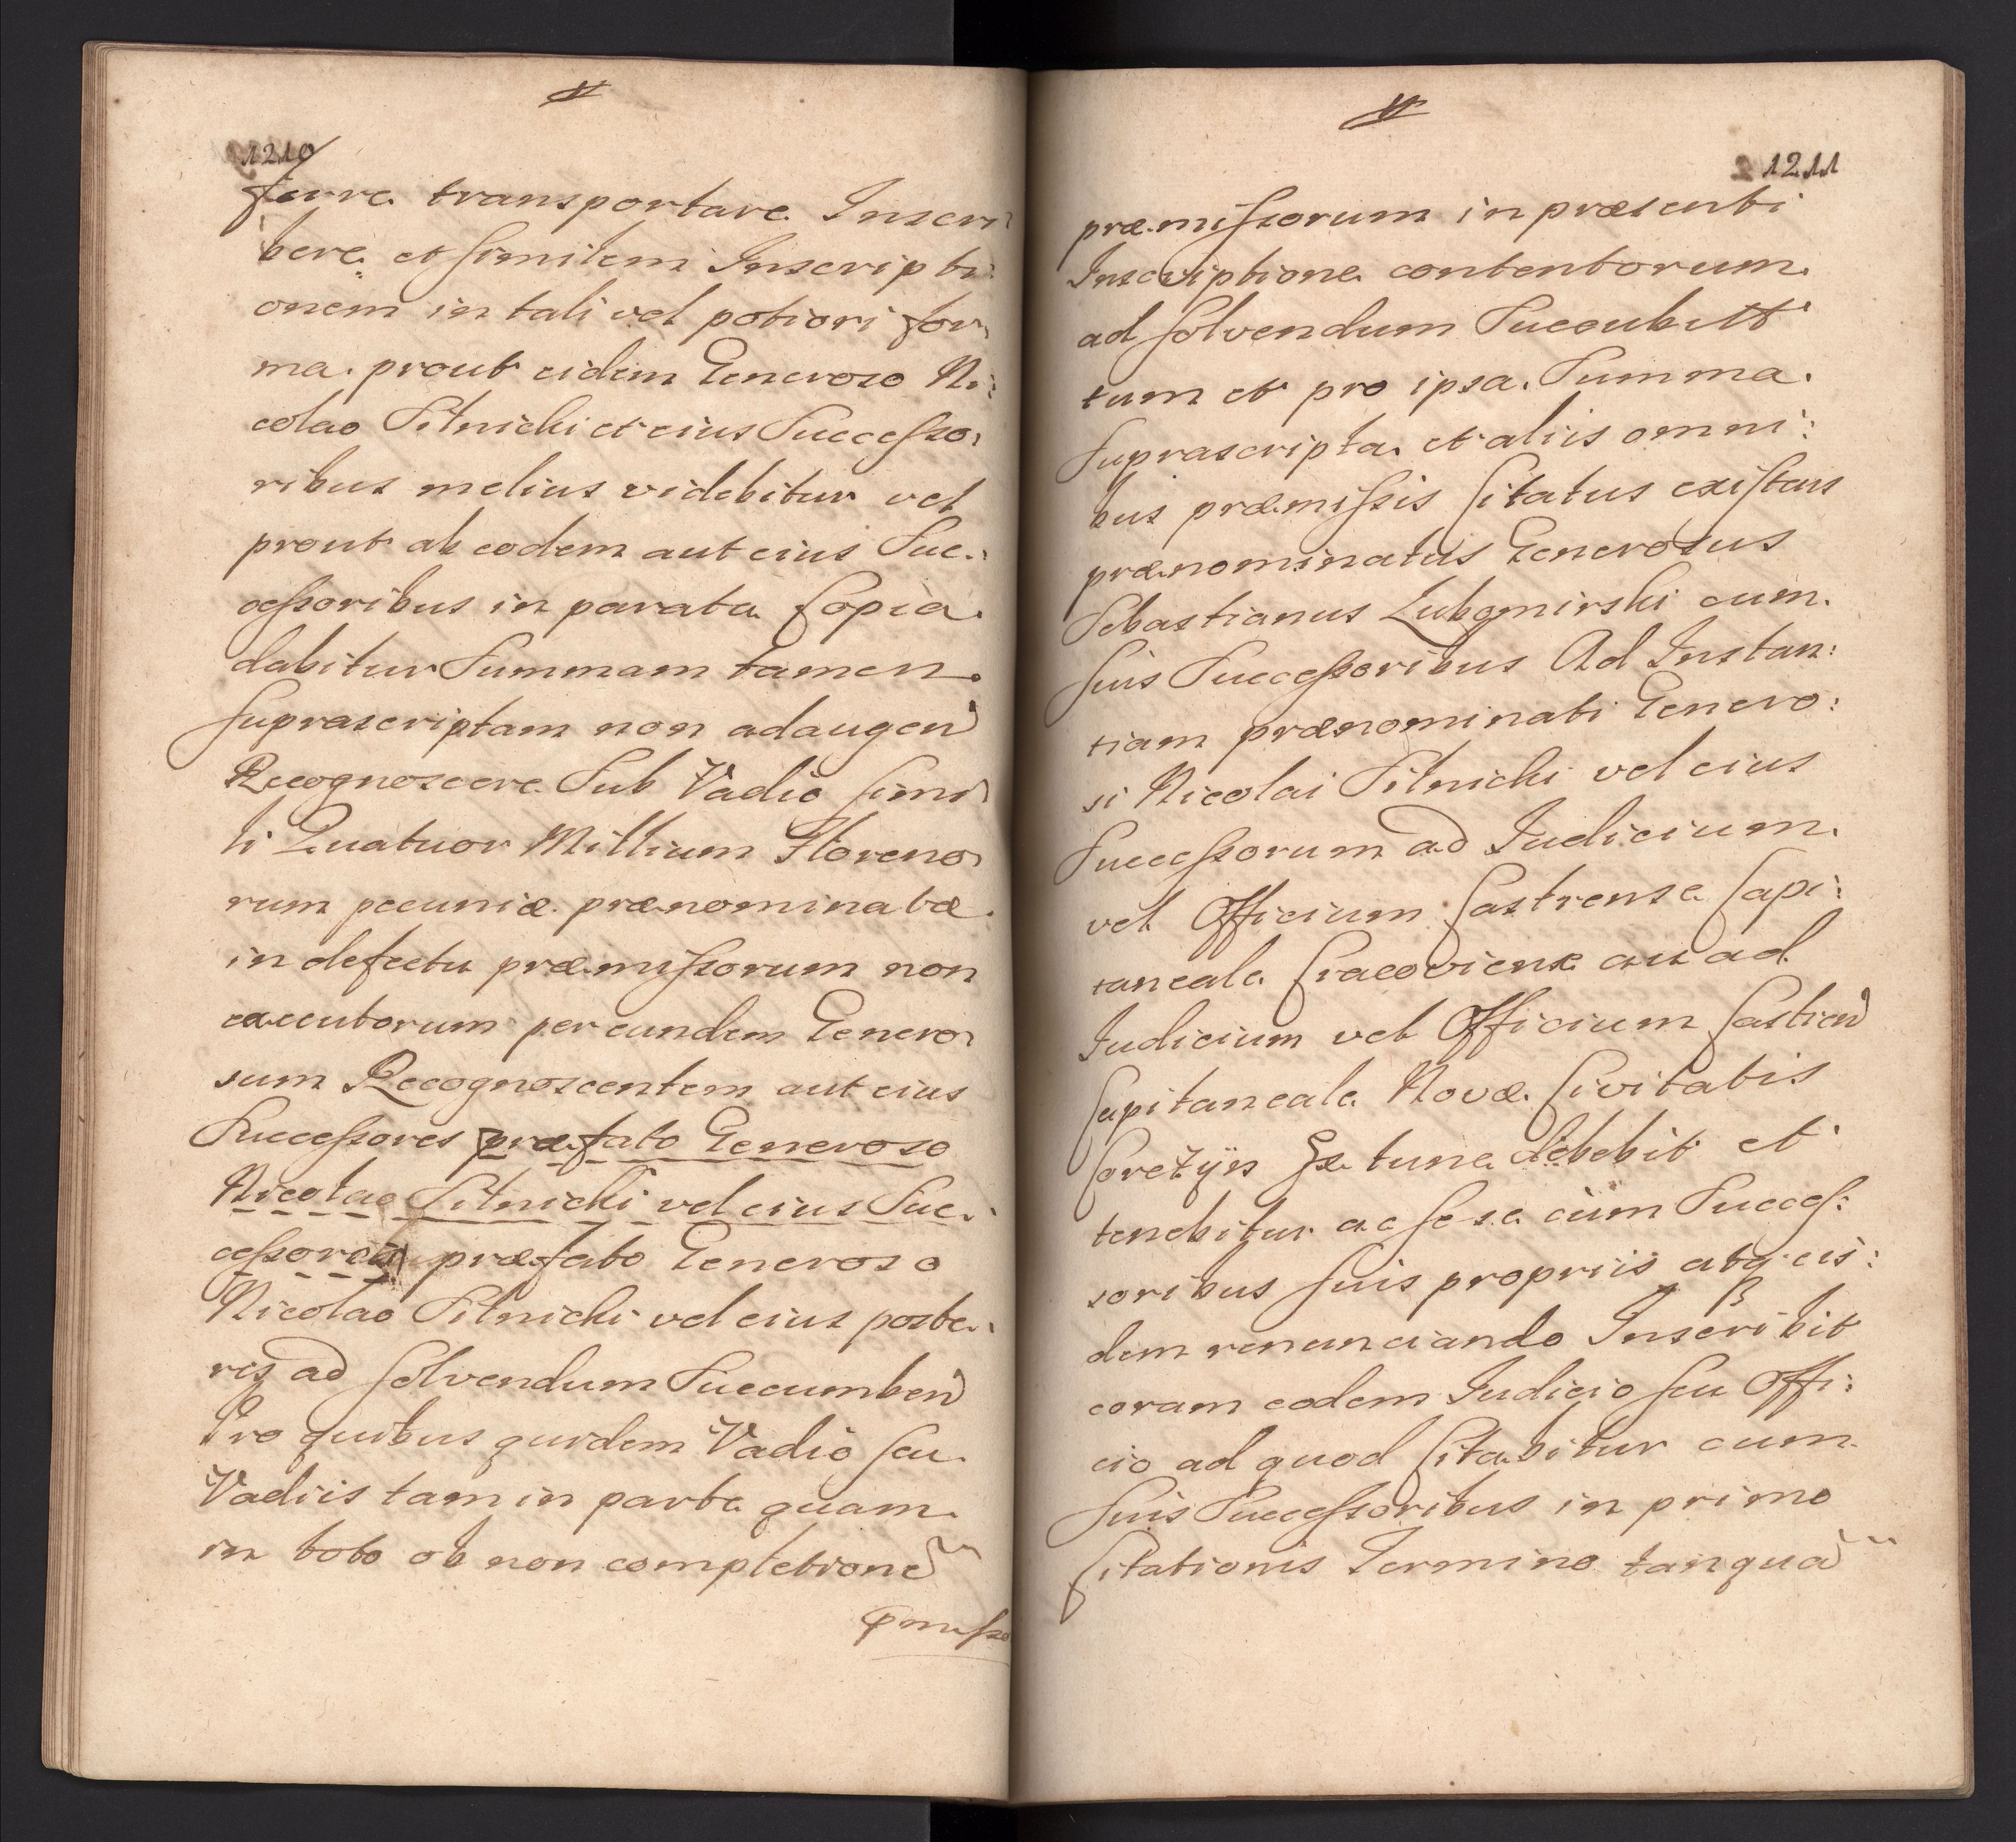 1210
ferre transportare Inscri
bere et similem Inscripti
onem in tali vel potiori for,
ma prout eidem Generoso Ni:
colao Silnicki et eius Successo,
ribus melius videbitur vel
prout ab eodem aut eius Suc:
cessoribus in parata Copia
dabitur Summam tamen
Suprascriptam non adaugen
Recognoscere Sub Vadio simi
li Quatuor Millium Floreno
rum pecuniæ prænominatæ
in defectu præmissorum non
executorum per eundem Genero
sum Recognoscentem aut eius
Successores præfato Generoso
Nicolao Silnicki vel eius Suc:
cessores præfato Generoso
Nicolao Silnicki vel eius poste:
ris ad solvendum Succumben
Pro quibus quidem Vadio seu
Vadiis tam in parte quam
in toto ob non completione
pmisso
1211
præmissorum in præsenti
Inscriptione contentorum
ad solvendum Succubitt
tum et pro ipsa Summa
Suprascripta et aliis omni:
bus præmissis Citatus existens
prænominatus Generosus
Sebastianus Lubomirski cum
suis Successoribus Ad Instan:
tiam prænominati Genero:
si Nicolai Silnicki vel eius
Successorum ad Iudicium
vel Officium Castrense Capi:
taneale Cracoviense aut ad
Iudicium vel Officium Castren
Capitaneale Novæ Civitatis
Corczÿn Ex tunc debebit et
tenebitur ac sese cum Succes:
soribus suis propriis atq eis:
dem renunciando Inscribit
coram eodem Iudicio seu Offi:
cio ad quod Citabitur cum
Suis Successoribus in primo
Citationis Termino tanqua